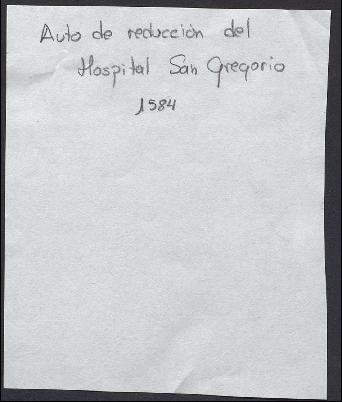 Auto de reducción del
Hospital San Gregorio
1584